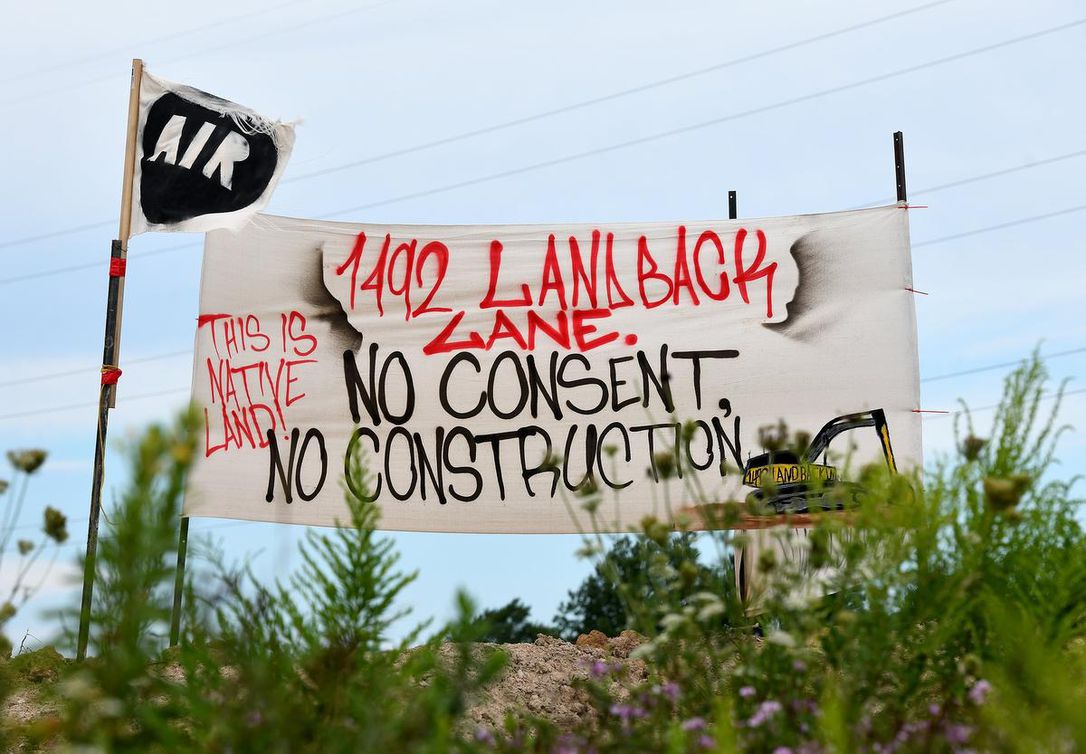 AIR
1492 LANDBACK
LANE.
THIS IS
NATIVE
LAND!
NO CONSENT,
NO CONSTRUCTION,